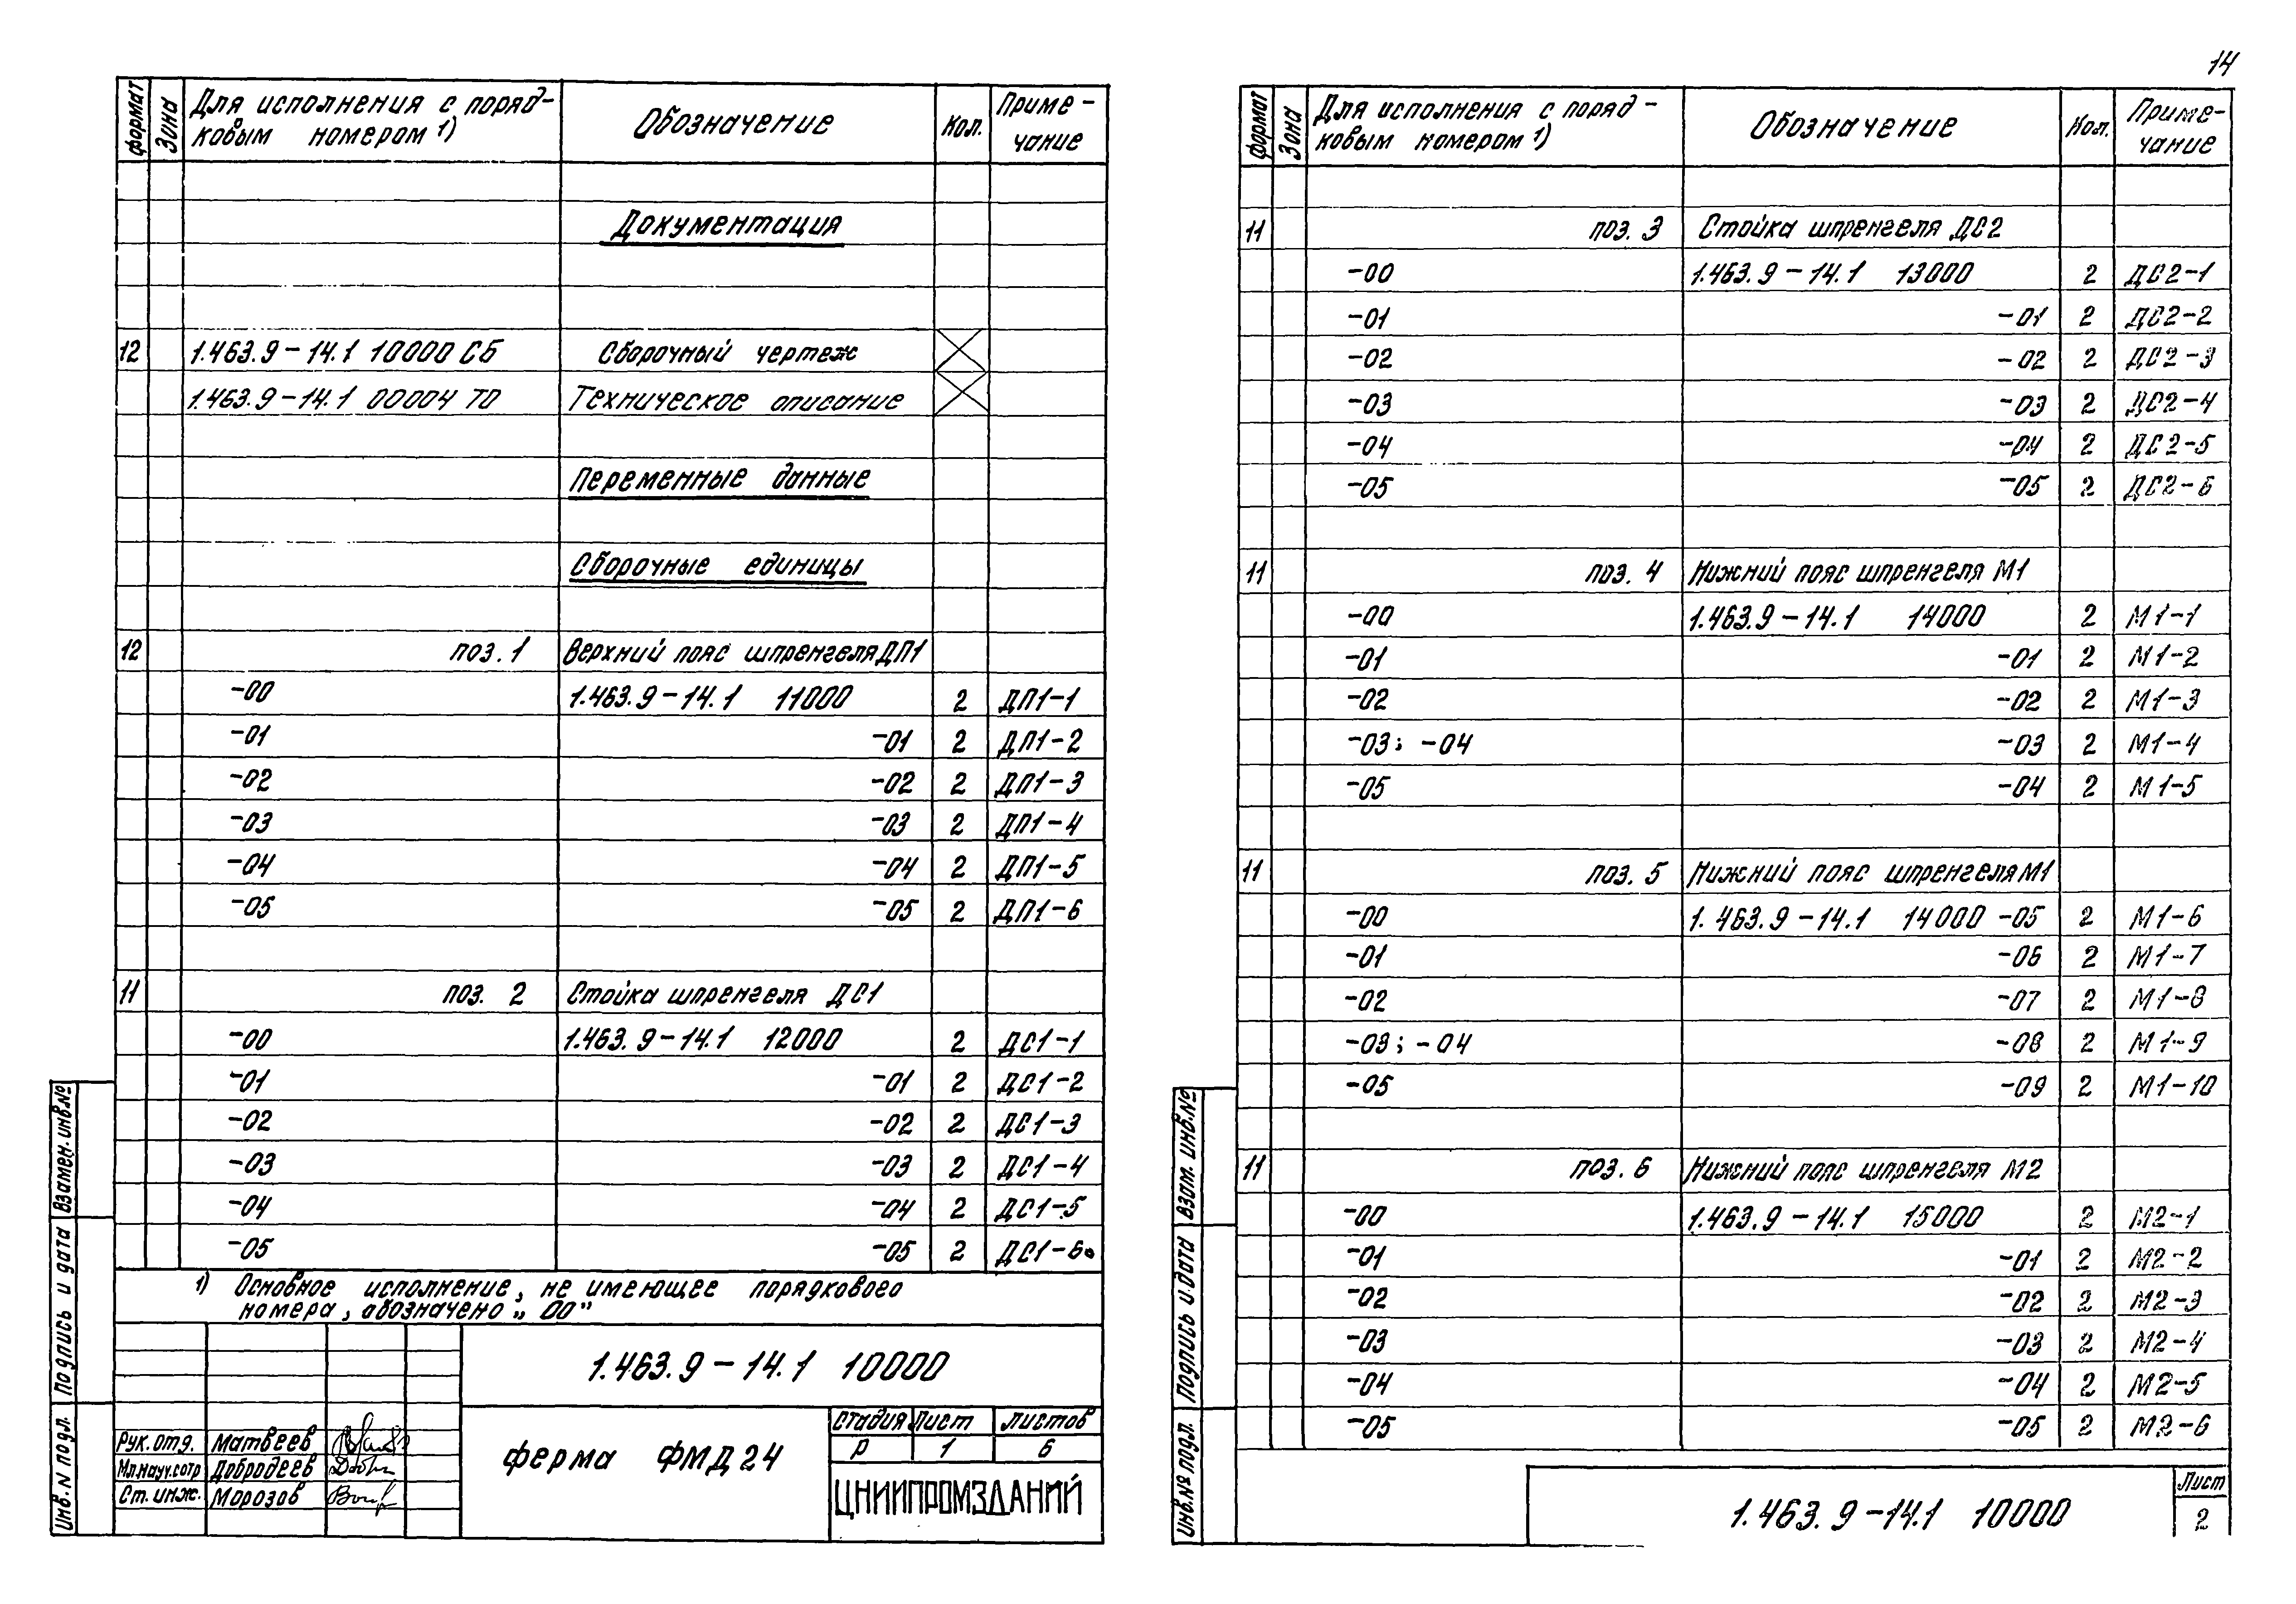 14
формат Зона Для исполнения с поряд- Обозначение Кол. Приме-
ковым номером 1) чание
Документация
12 1.463.9-14.1 10000 СБ Сборочный чертеж
1.463.9-14.1 00004 ТО Техническое описание
Переменные данные
Сборочные единицы
12 поз. 1 Верхний пояс шпренгеля ДП1
-00 1.463.9-14.1 11000 2 ДП1-1
-01 -01 2 ДП1-2
-02 -02 2 ДП1-3
-03 -03 2 ДП1-4
-04 -04 2 ДП1-5
-05 -05 2 ДП1-6
11 поз. 2 Стойка шпренгеля ДС1
-00 1.463.9-14.1 12000 2 ДС1-1
-01 -01 2 ДС1-2
-02 -02 2 ДС1-3
-03 -03 2 ДС1-4
-04 -04 2 ДС1-5
-05 -05 2 ДС1-6
1) Основное исполнение, не имеющее порядкового
номера, обозначено „00"
1.463.9-14.1 10000
Рук. отд. Матвеев
Мл.науч.сотр Добродеев
Ст. инж. Морозов
ферма ФМД24
Стадия Лист Листов
Р 1 6
ЦНИИПРОМЗДАНИЙ
Взамен. инв.№
Подпись и дата
Инв. N подл.
формат Зона Для исполнения с поряд- Обозначение Кол. Приме-
ковым номером 1) чание
11 поз. 3 Стойка шпренгеля ДС2
-00 1.463.9-14.1 13000 2 ДС2-1
-01 -01 2 ДС2-2
-02 -02 2 ДС2-3
-03 -03 2 ДС2-4
-04 -04 2 ДС2-5
-05 -05 2 ДС2-6
11 поз. 4 Нижний пояс шпренгеля М1
-00 1.463.9-14.1 14000 2 М1-1
-01 -01 2 М1-2
-02 -02 2 М1-3
-03; -04 -03 2 М1-4
-05 -04 2 М1-5
11 поз. 5 Нижний пояс шпренгеля М1
-00 1.463.9-14.1 14000 -05 2 М1-6
-01 -06 2 М1-7
-02 -07 2 М1-8
-03; -04 -08 2 М1-9
-05 -09 2 М1-10
11 поз. 6 Нижний пояс шпренгеля М2
-00 1.463.9-14.1 15000 2 М2-1
-01 -01 2 М2-2
-02 -02 2 М2-3
-03 -03 2 М2-4
-04 -04 2 М2-5
-05 -05 2 М2-6
1.463.9-14.1 10000
Лист
2
Взам. инв.№
Подпись и дата
Инв.№ подл.